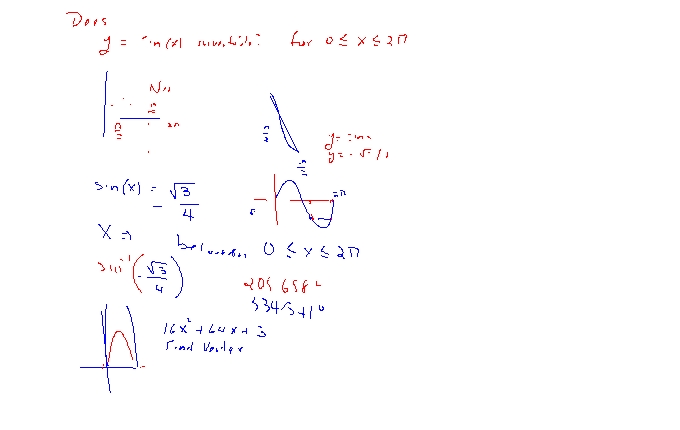 Does
y = sin(x) invertible? for 0 ≤ x ≤ 2π
No
π/2
2π
π/2
y = sin x
sin(x) = -√3/4
2π
X ⇒ between 0 ≤ x ≤ 2π
sin⁻¹(-√3/4)
205.658°
16x² + 64x + 3
Find Vertex